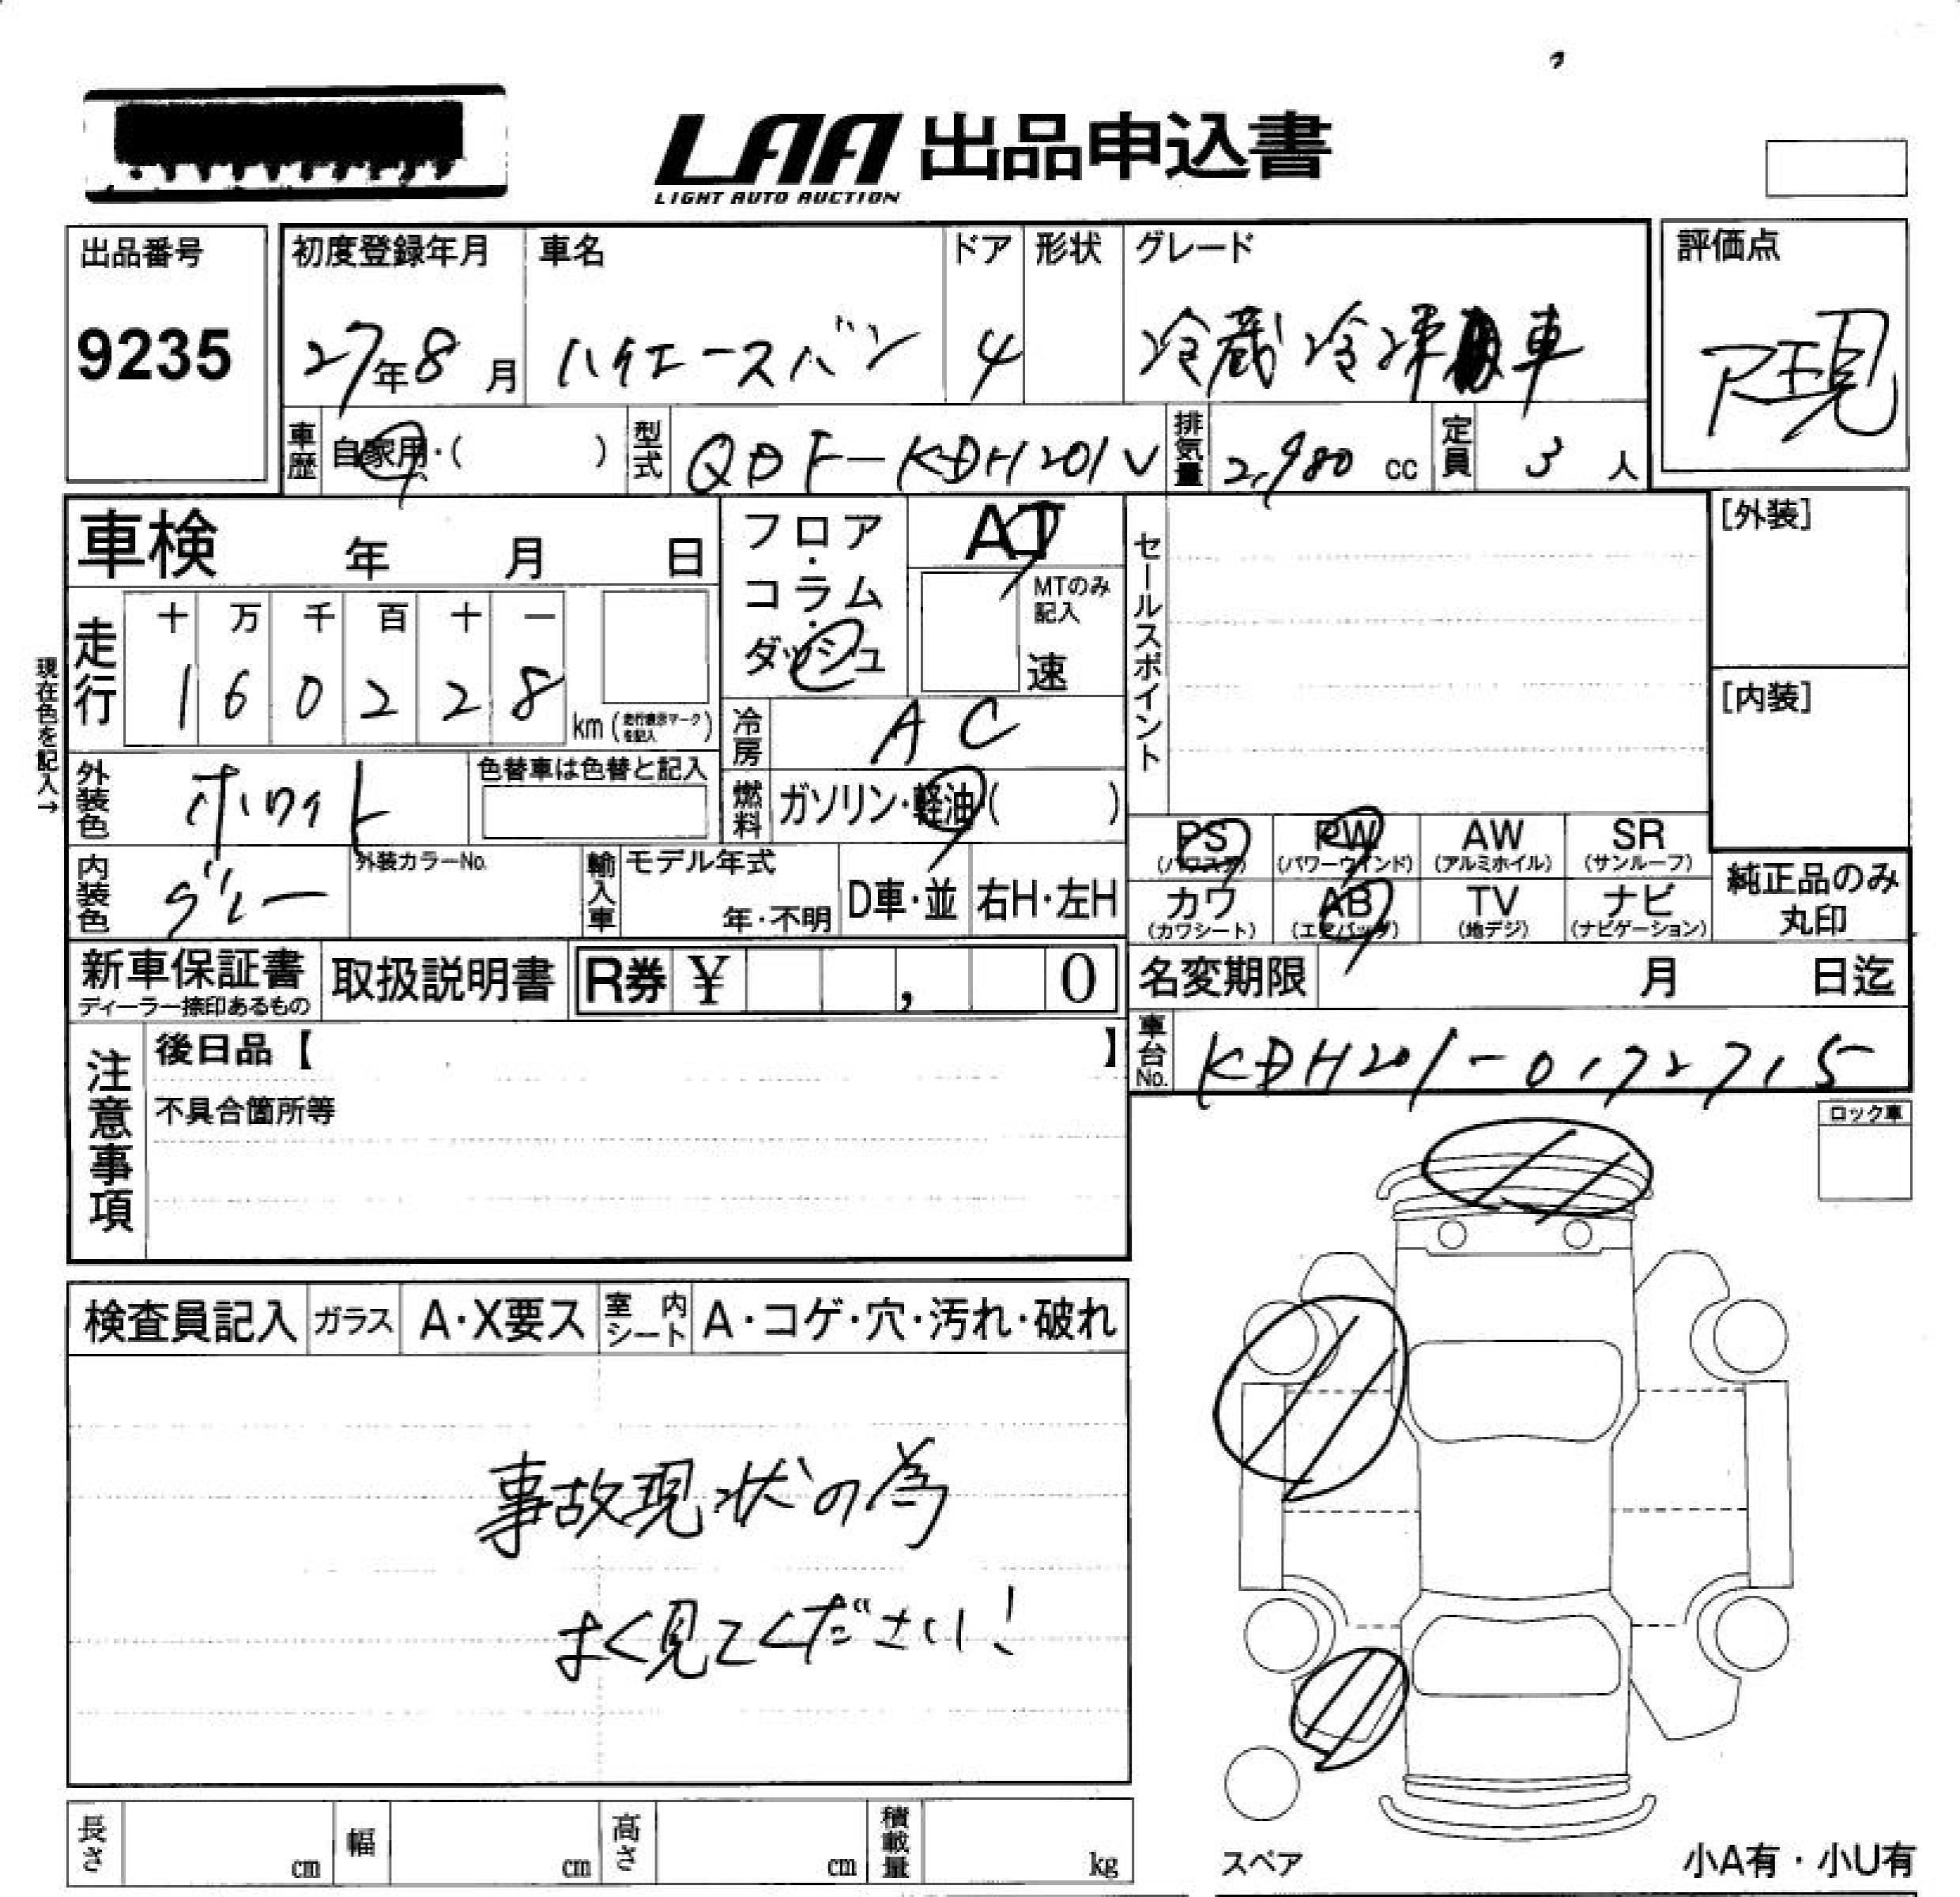 LAA 出品申込書
LIGHT AUTO AUCTION
出品番号
9235
初度登録年月
27年8月
車名
ハイエースバン
ドア
4
形状
グレード
冷蔵冷凍車
評価点
車歴
自家用・( )
型式
QDF-KDH201V
排気量
2,980 cc
定員
3人
車検 年 月 日
フロア・コラム・ダッシュ
AT
MTのみ記入
速
セールスポイント
[外装]
[内装]
現在色を記入→
走行
十 万 千 百 十 一
1 6 0 2 2 8
km(走行表示マークを記入)
冷房
AC
外装色
ホワイト
色替車は色替と記入
燃料
ガソリン・軽油( )
内装色
グレー
外装カラーNo.
輸入車
モデル年式
年・不明
D車・並
右H・左H
PS
(パワステ)
PW
(パワーウインド)
AW
(アルミホイル)
SR
(サンルーフ)
カワ
(カワシート)
AB
(エアバッグ)
TV
(地デジ)
ナビ
(ナビゲーション)
純正品のみ
丸印
新車保証書
ディーラー捺印あるもの
取扱説明書
R券 ¥ , 0
名変期限 月 日迄
注意事項
後日品【 】
不具合箇所等
車台No.
KDH201-0172715
ロック車
検査員記入
ガラス
A・X要ス
室内シート
A・コゲ・穴・汚れ・破れ
事故現状の為
よく見てください!
長さ cm
幅 cm
高さ cm
積載量 kg
スペア
小A有・小U有